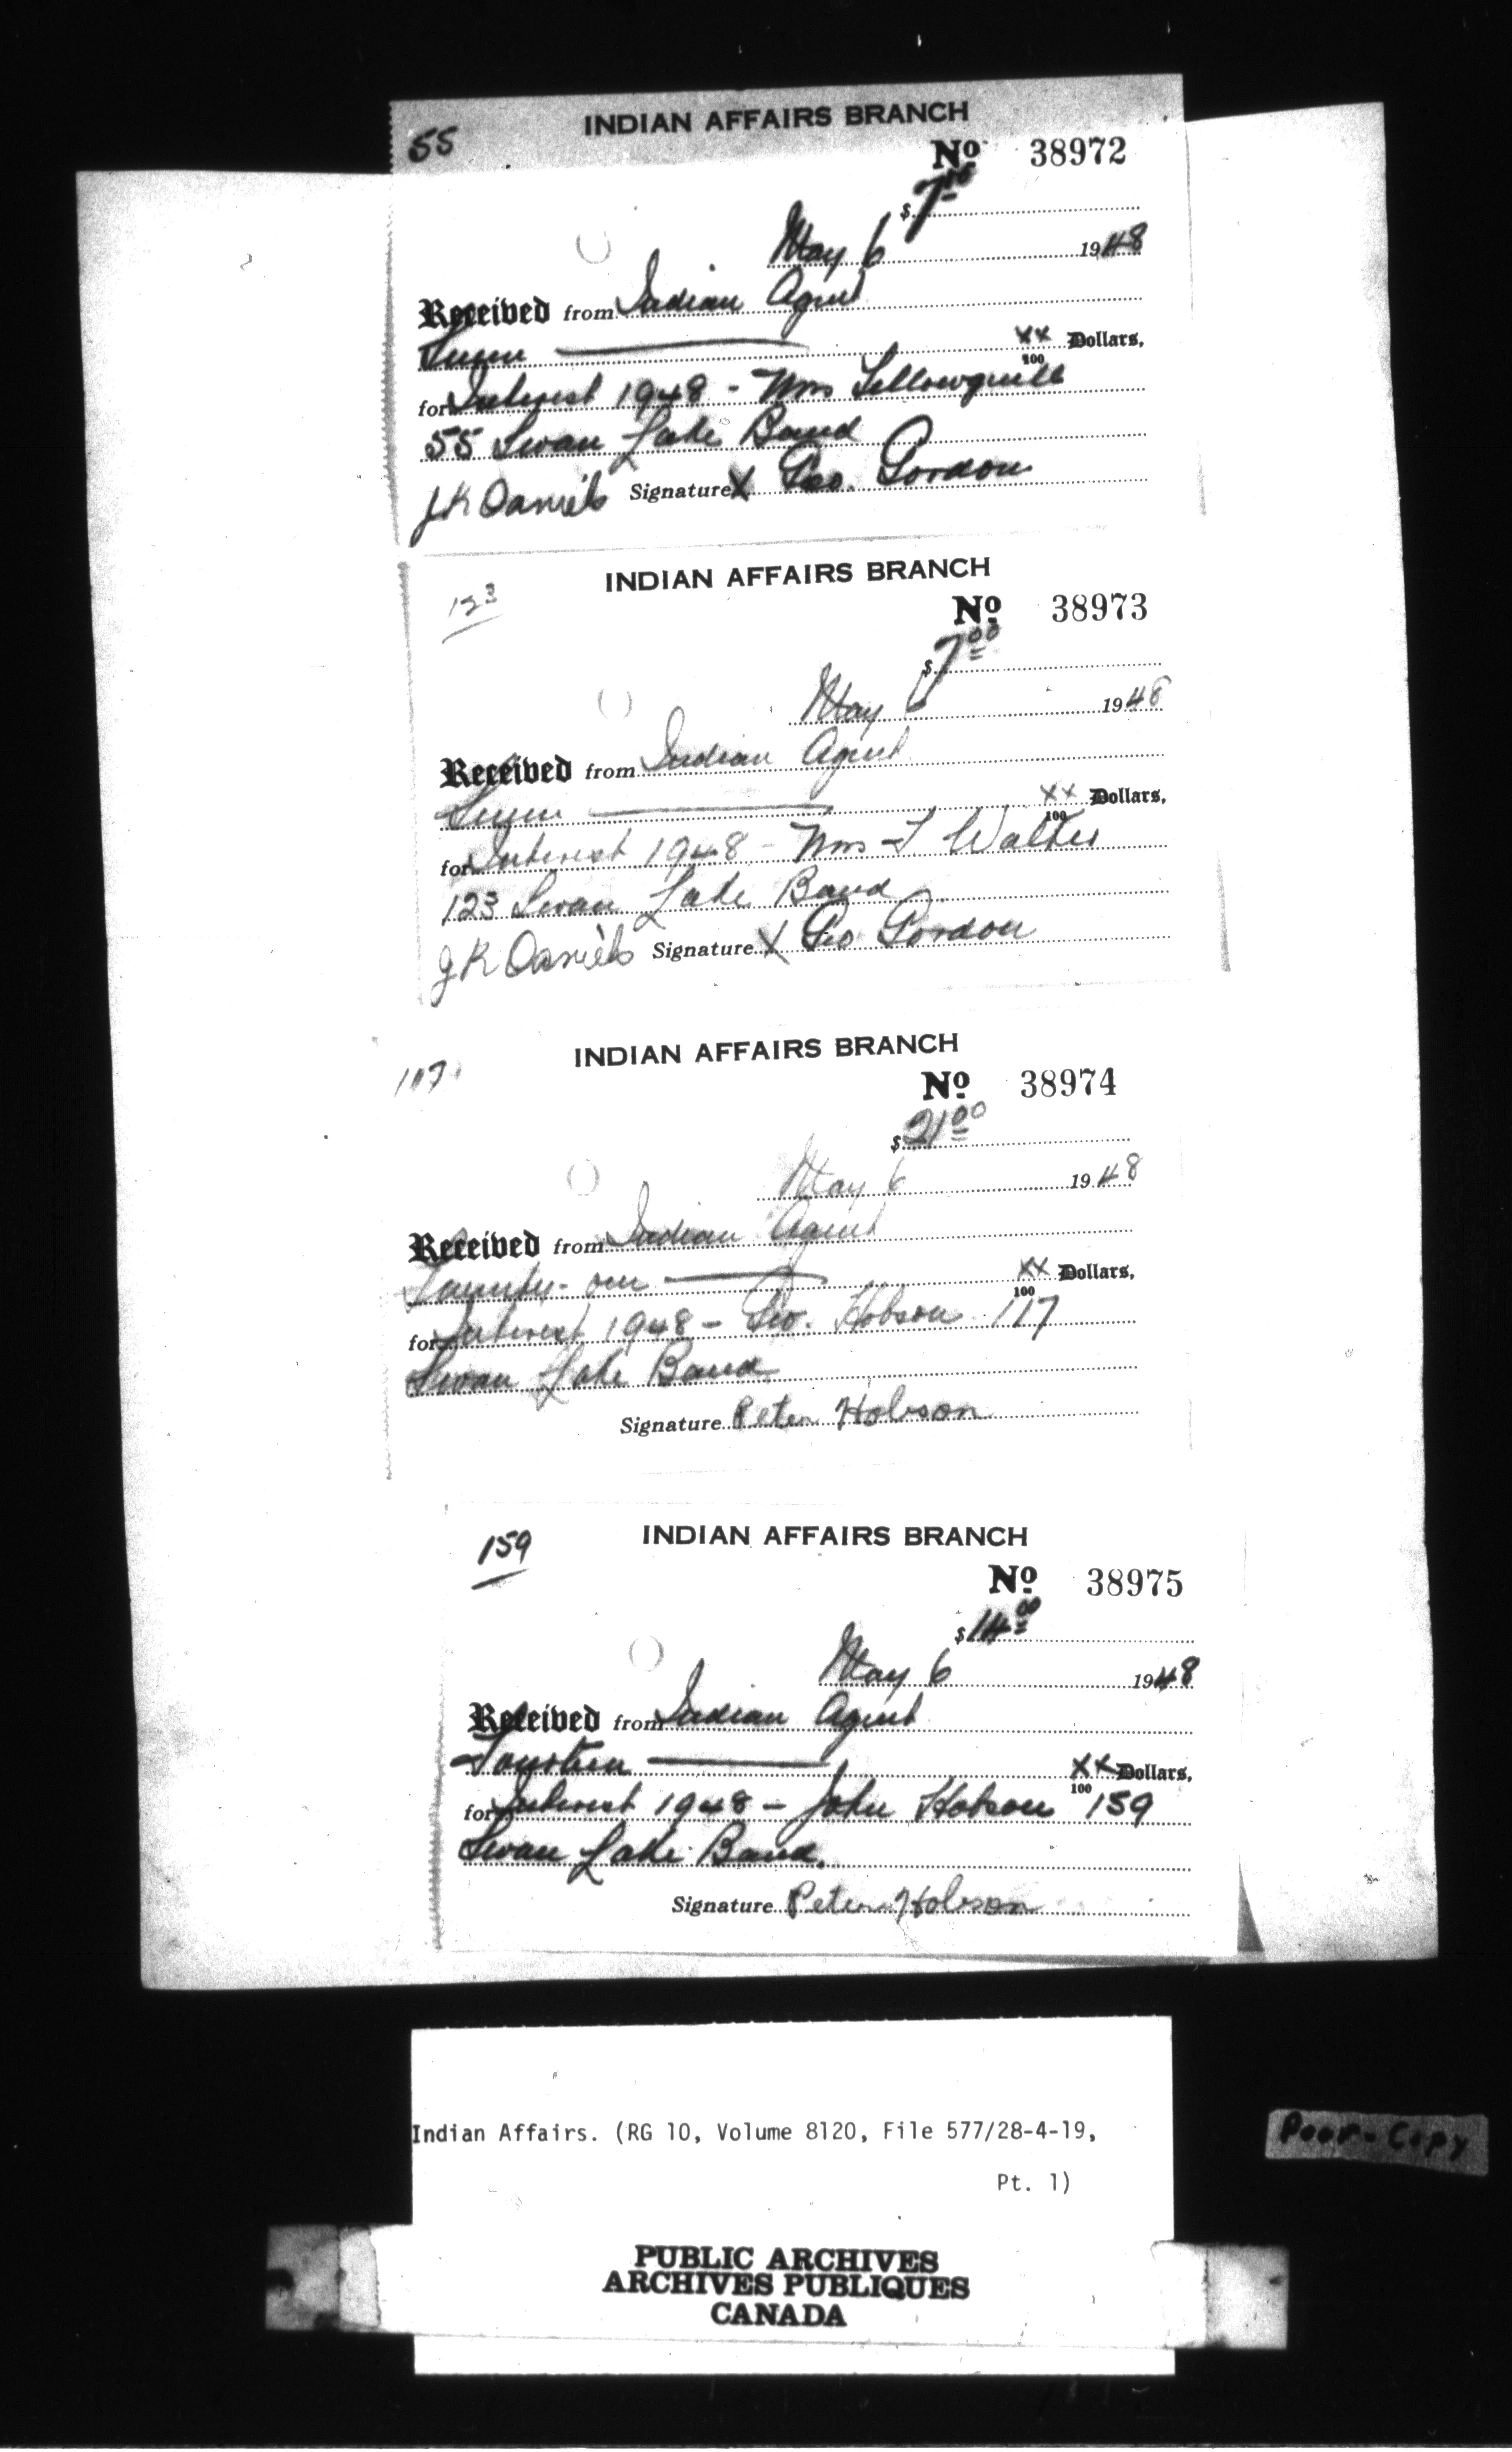 55
INDIAN AFFAIRS BRANCH
No 38972
$ 7.00
May 6 1948
Received from Indian Agent
Seven xx/100 Dollars,
for Interest 1948 - Wm Yellowquill
55 Swan Lake Band
JR Daniels Signature X Geo. Gordon
123
INDIAN AFFAIRS BRANCH
No 38973
$ 7.00
May 6 1948
Received from Indian Agent
Seven xx/100 Dollars,
for Interest 1948 - Wm T Walter
123 Swan Lake Band
JR Daniels Signature X Geo Gordon
117
INDIAN AFFAIRS BRANCH
No 38974
$ 21.00
May 6 1948
Received from Indian Agent
Twenty-one xx/100 Dollars,
for Interest 1948 - Geo. Hobson 117
Swan Lake Band
Signature Peter Hobson
159
INDIAN AFFAIRS BRANCH
No 38975
$ 14.00
May 6 1948
Received from Indian Agent
Fourteen xx/100 Dollars,
for Interest 1948 - John Hobson 159
Swan Lake Band.
Signature Peter Hobson
Indian Affairs. (RG 10, Volume 8120, File 577/28-4-19,
Pt. 1)
Poor-Copy
PUBLIC ARCHIVES
ARCHIVES PUBLIQUES
CANADA